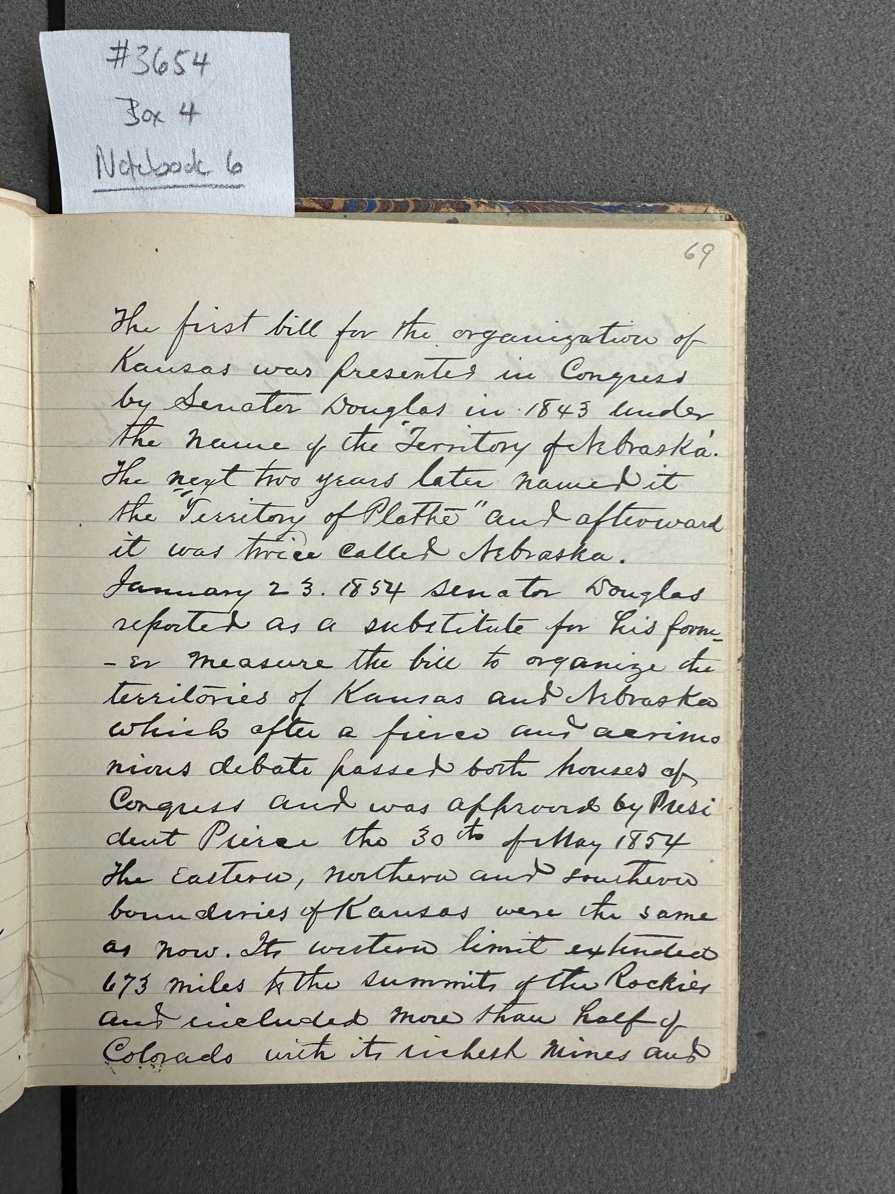 #3654
Box 4
Notebook 6
69
The first bill for the organization of
Kansas was presented in Congress
by Senator Douglas in 1843 under
the name of the "Territory of Nebraska".
The next two years later named it
the "Territory of Platte" and afterward
it was twice called Nebraska.
January 23. 1854 Senator Douglas
reported as a substitute for his form-
-er measure the bill to organize the
territories of Kansas and Nebraska
which after a fierce and acrimo
nious debate passed both houses of
Congress and was approved by Presi
dent Pierce the 30th of May 1854
The Eastern, northern and southern
bounderies of Kansas were the same
as now. Its western limit extended
673 miles to the summits of the Rockies
and included more than half of
Colorado with its richest mines and